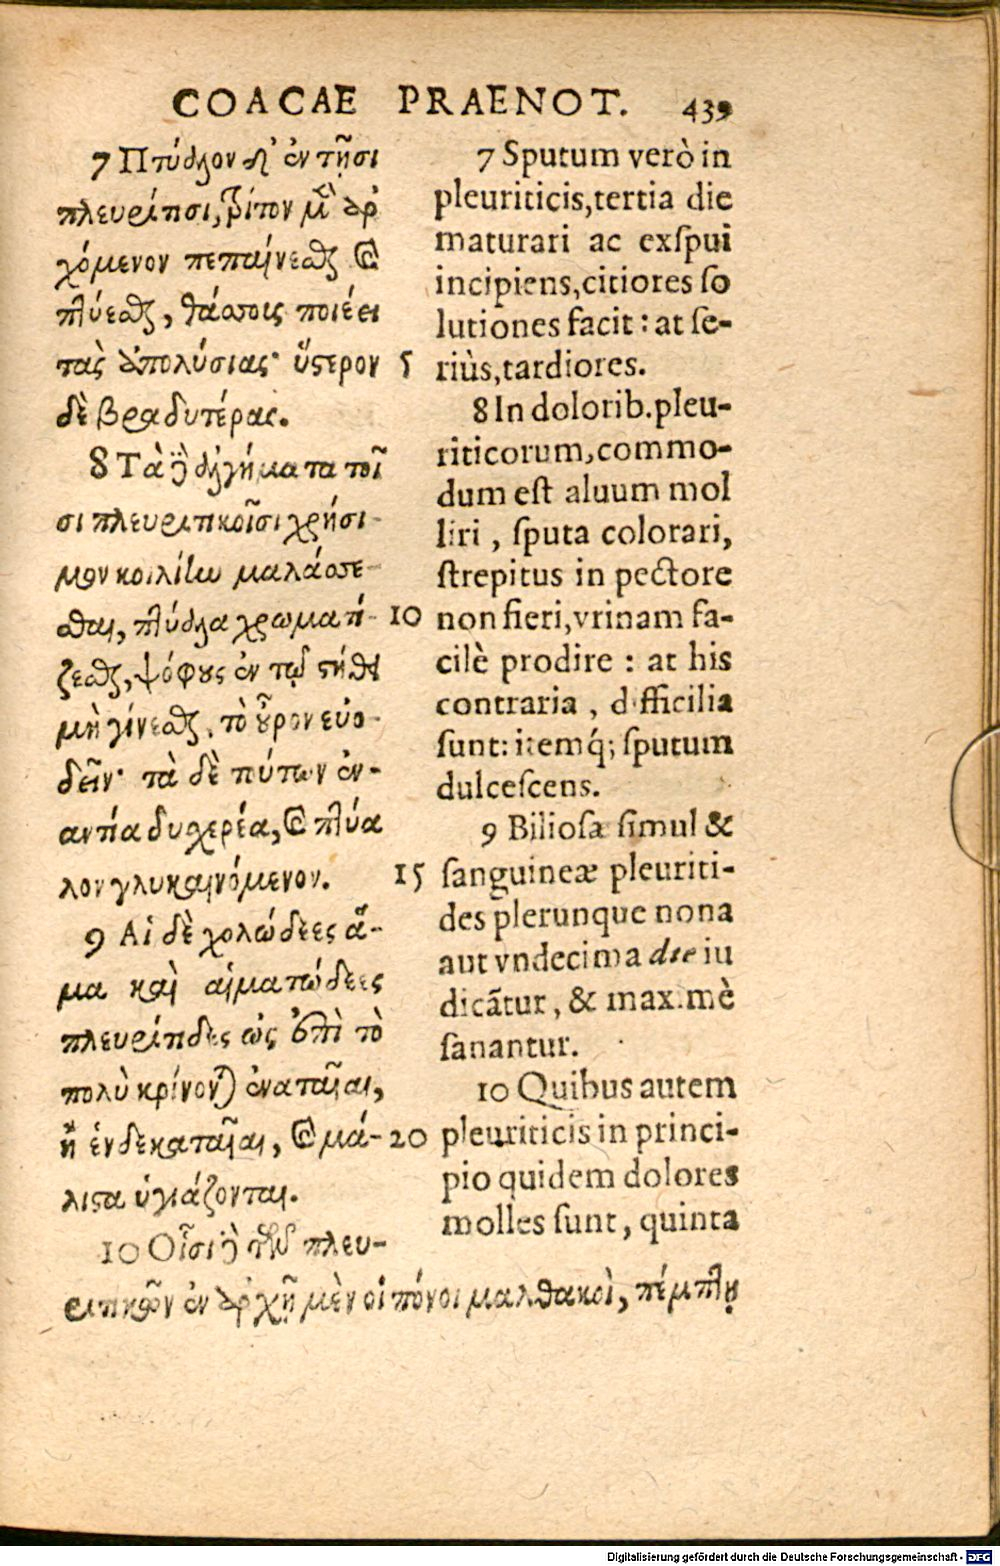 COACAE PRAENOT. 439
7 Πτύελον δ' ἐν τῇσι
πλευρίτισι, τρίτον μὲν ἀρ
χόμενον πεπαίνεσθαι καὶ
πτύεσθαι, θάσσοις ποιέει
τὰς ἀπολύσιας· ὕστερον 5
δὲ βραδυτέρας.
8 Τὰ δὲ ἀλγήματα τοῖ
σι πλευριτικοῖσι χρήσι-
μον κοιλίην μαλάσσε-
σθαι, πτύελα χρωματί- 10
ζεσθαι, ψόφους ἐν τῷ στήθει
μὴ γίνεσθαι, τὸ οὖρον εὐο-
δεῖν· τὰ δὲ τούτων ἐν-
αντία δυσχερέα, καὶ πτύα
λον γλυκαινόμενον. 15
9 Αἱ δὲ χολώδεες ἅ-
μα καὶ αἱματώδεες
πλευρίτιδες ὡς ἐπὶ τὸ
πολὺ κρίνονται ἐναταῖαι,
ἢ ἑνδεκαταῖαι, καὶ μά- 20
λιστα ὑγιάζονται.
10 Οἷσι δὲ τῶν πλευ-
ριτικῶν ἐν ἀρχῇ μὲν οἱ πόνοι μαλθακοὶ, πέμπτῃ
7 Sputum verò in
pleuriticis, tertia die
maturari ac exſpui
incipiens, citiores ſo
lutiones facit: at ſe-
riùs, tardiores.
8 In dolorib. pleu-
riticorum, commo-
dum eſt aluum mol
liri, ſputa colorari,
ſtrepitus in pectore
non fieri, vrinam fa-
cilè prodire: at his
contraria, difficilia
ſunt: itemq́; ſputum
dulceſcens.
9 Bilioſæ ſimul &
ſanguineæ pleuriti-
des plerunque nona
aut vndecima die iu
dicãtur, & maximè
ſanantur.
10 Quibus autem
pleuriticis in princi-
pio quidem dolores
molles ſunt, quinta
Digitalisierung gefördert durch die Deutsche Forschungsgemeinschaft - DFG